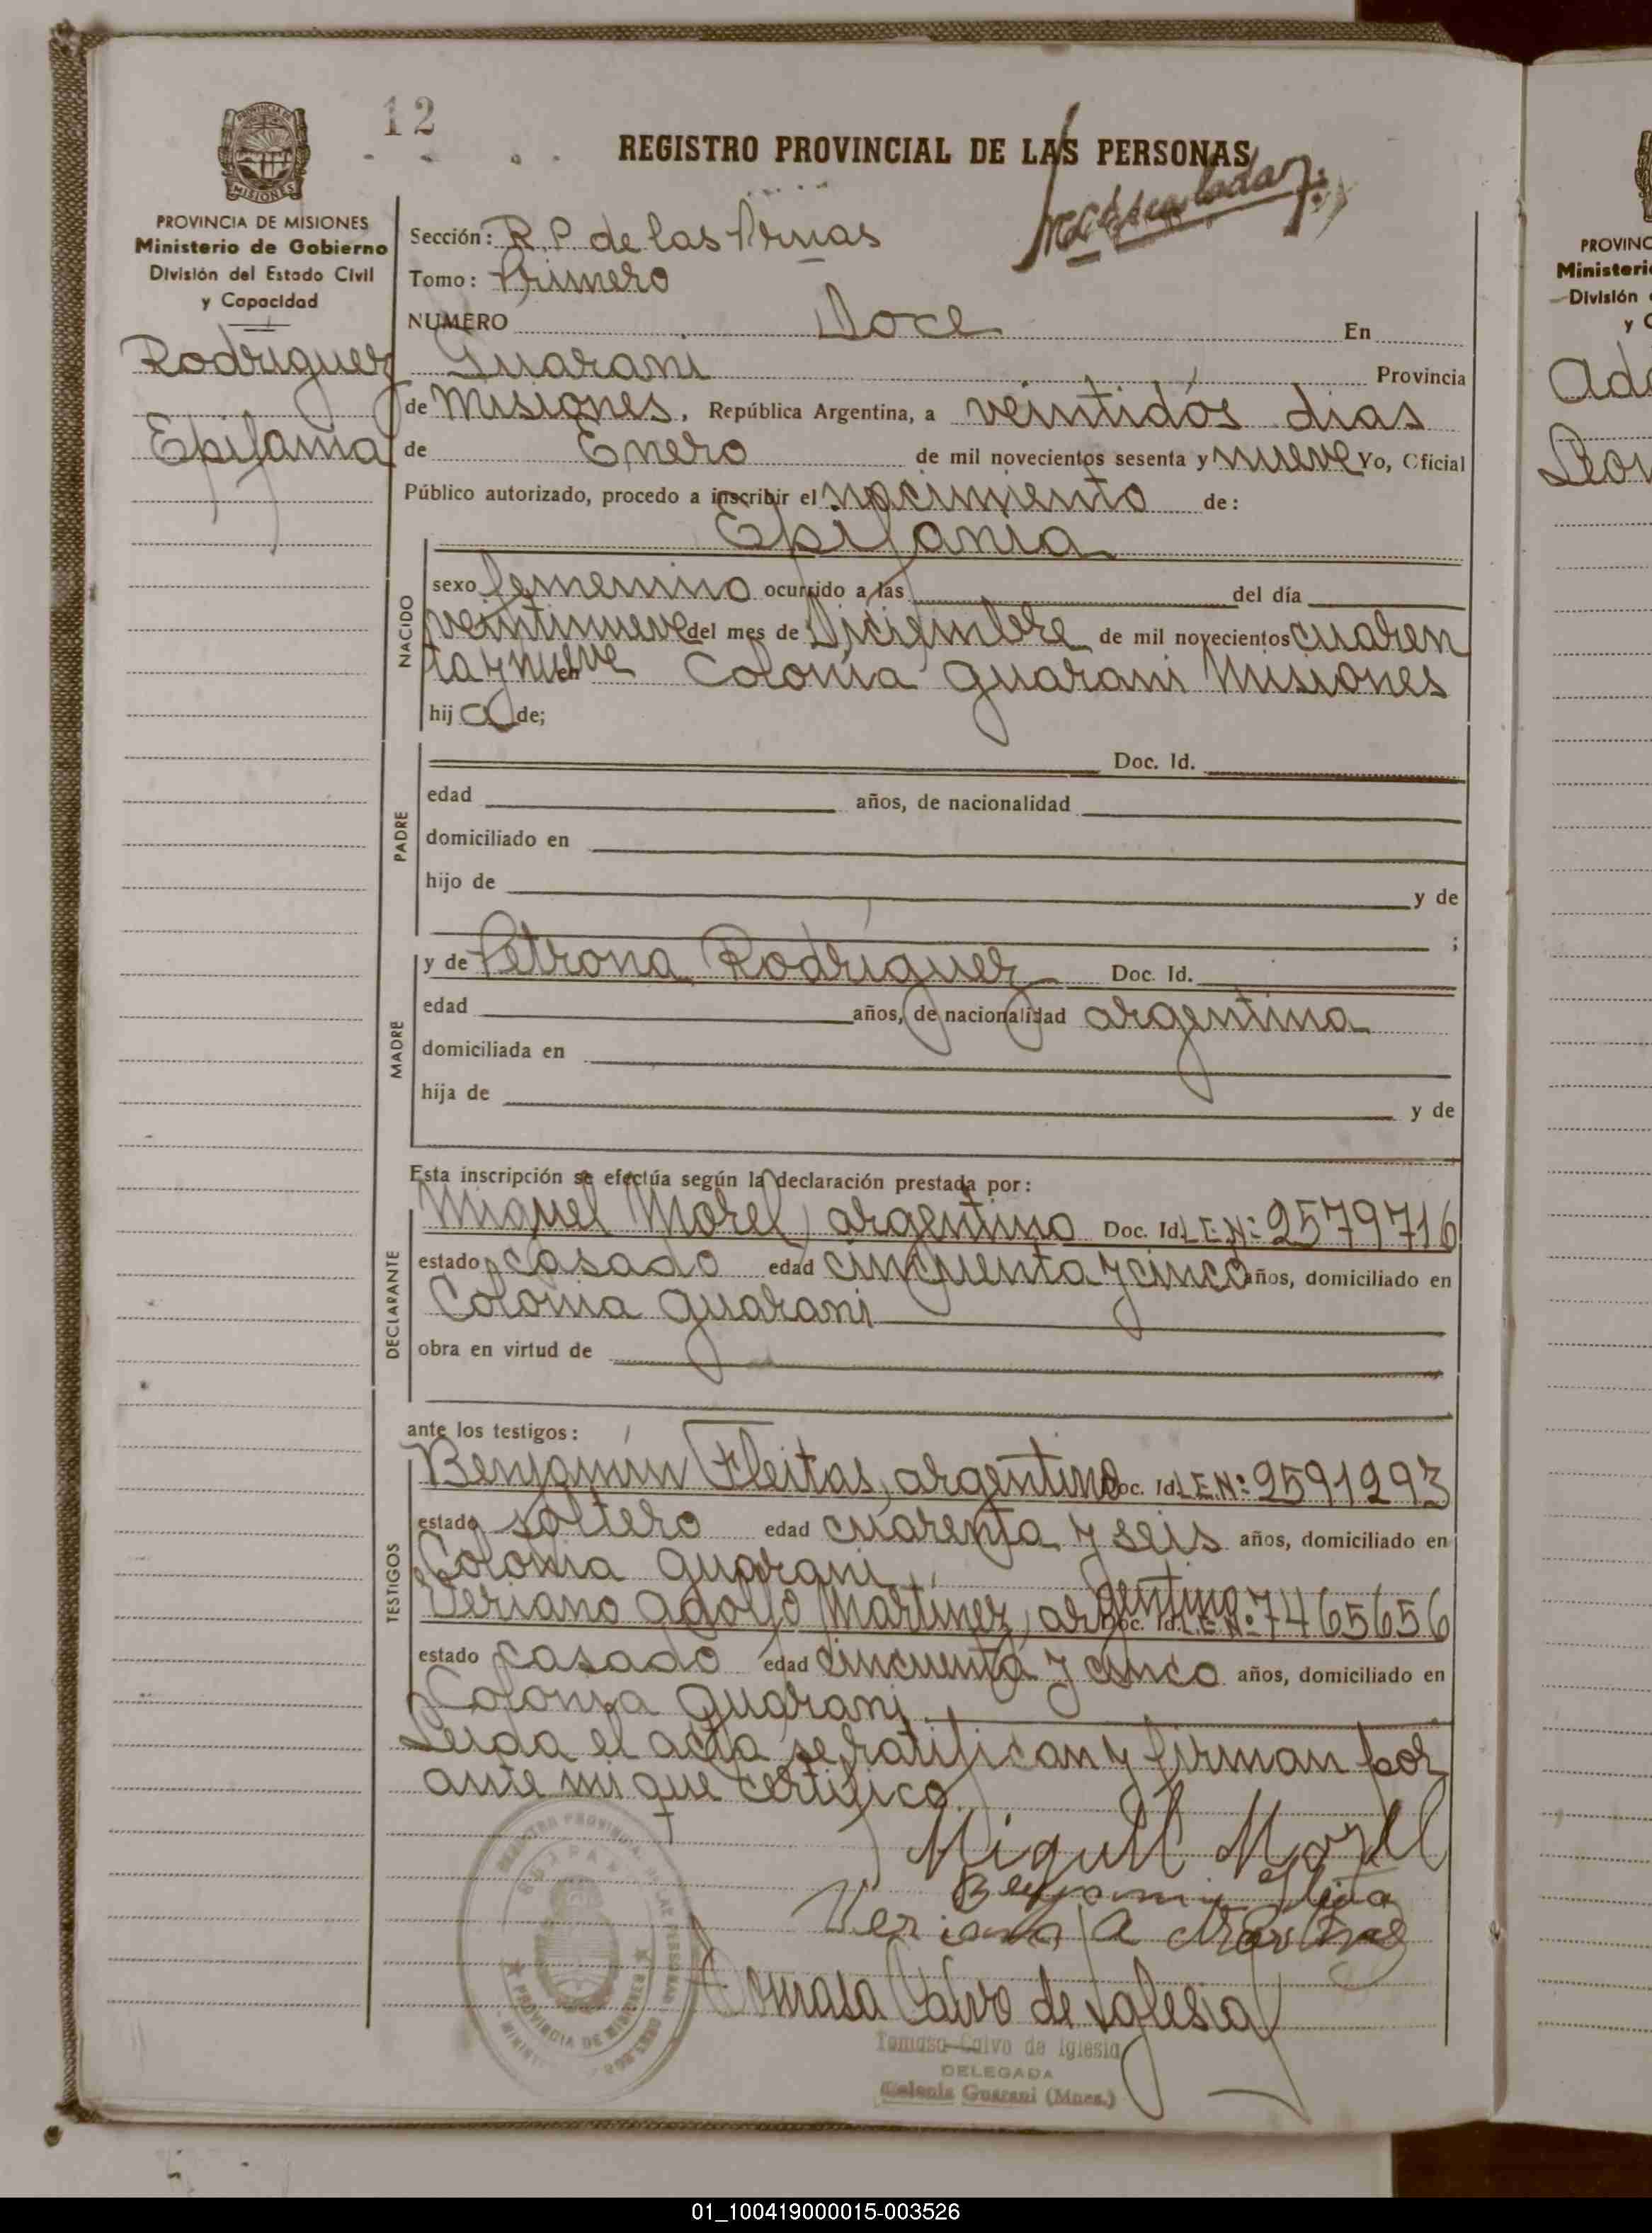 12
REGISTRO PROVINCIAL DE LAS PERSONAS
PROVINCIA DE
MISIONES
PROVINCIA DE MISIONES
Ministerio de Gobierno
División del Estado Civil
y Capacidad
Rodriguez
Epifania
Sección: R. P. de las Prnas
Tomo: Primero
NUMERO Doce En
Guarani Provincia
de Misiones, República Argentina, a veintidós dias
de Enero de mil novecientos sesenta y nueve Yo, Oficial
Público autorizado, procedo a inscribir el nacimiento de:
Epifania
NACIDO
sexo femenino ocurrido a las del día
veintinueve del mes de Diciembre de mil novecientos cuaren
ta y nueve en Colonia Guarani Misiones
hij a de;
PADRE
Doc. Id.
edad años, de nacionalidad
domiciliado en
hijo de y de
;
MADRE
y de Petrona Rodriguez Doc. Id.
edad años, de nacionalidad argentina
domiciliada en
hija de y de
Esta inscripción se efectúa según la declaración prestada por:
DECLARANTE
Miguel Morel, argentino Doc. Id. L.E.N: 2579716
estado casado edad cincuenta y cinco años, domiciliado en
Colonia Guarani
obra en virtud de
ante los testigos:
TESTIGOS
Benjamín Fleitas, argentino Doc. Id. L.E.N: 2591293
estado soltero edad cuarenta y seis años, domiciliado en
Colonia Guarani
Veriano Adolfo Martínez, argentino Doc. Id. L.E.N: 7465656
estado casado edad cincuenta y cinco años, domiciliado en
Colonia Guarani
Leida el acta se ratifican y firman por
ante mi que certifico
Miguel Morel
Benjamin Fleita
Veriano A Martinez
Tomasa Calvo de Iglesia
Tomasa Calvo de Iglesia
DELEGADA
Colonia Guarani (Mnes.)
PROVINCIA DE MISIONES
PROVINC
Ministeri
División
y C
01_100419000015-003526